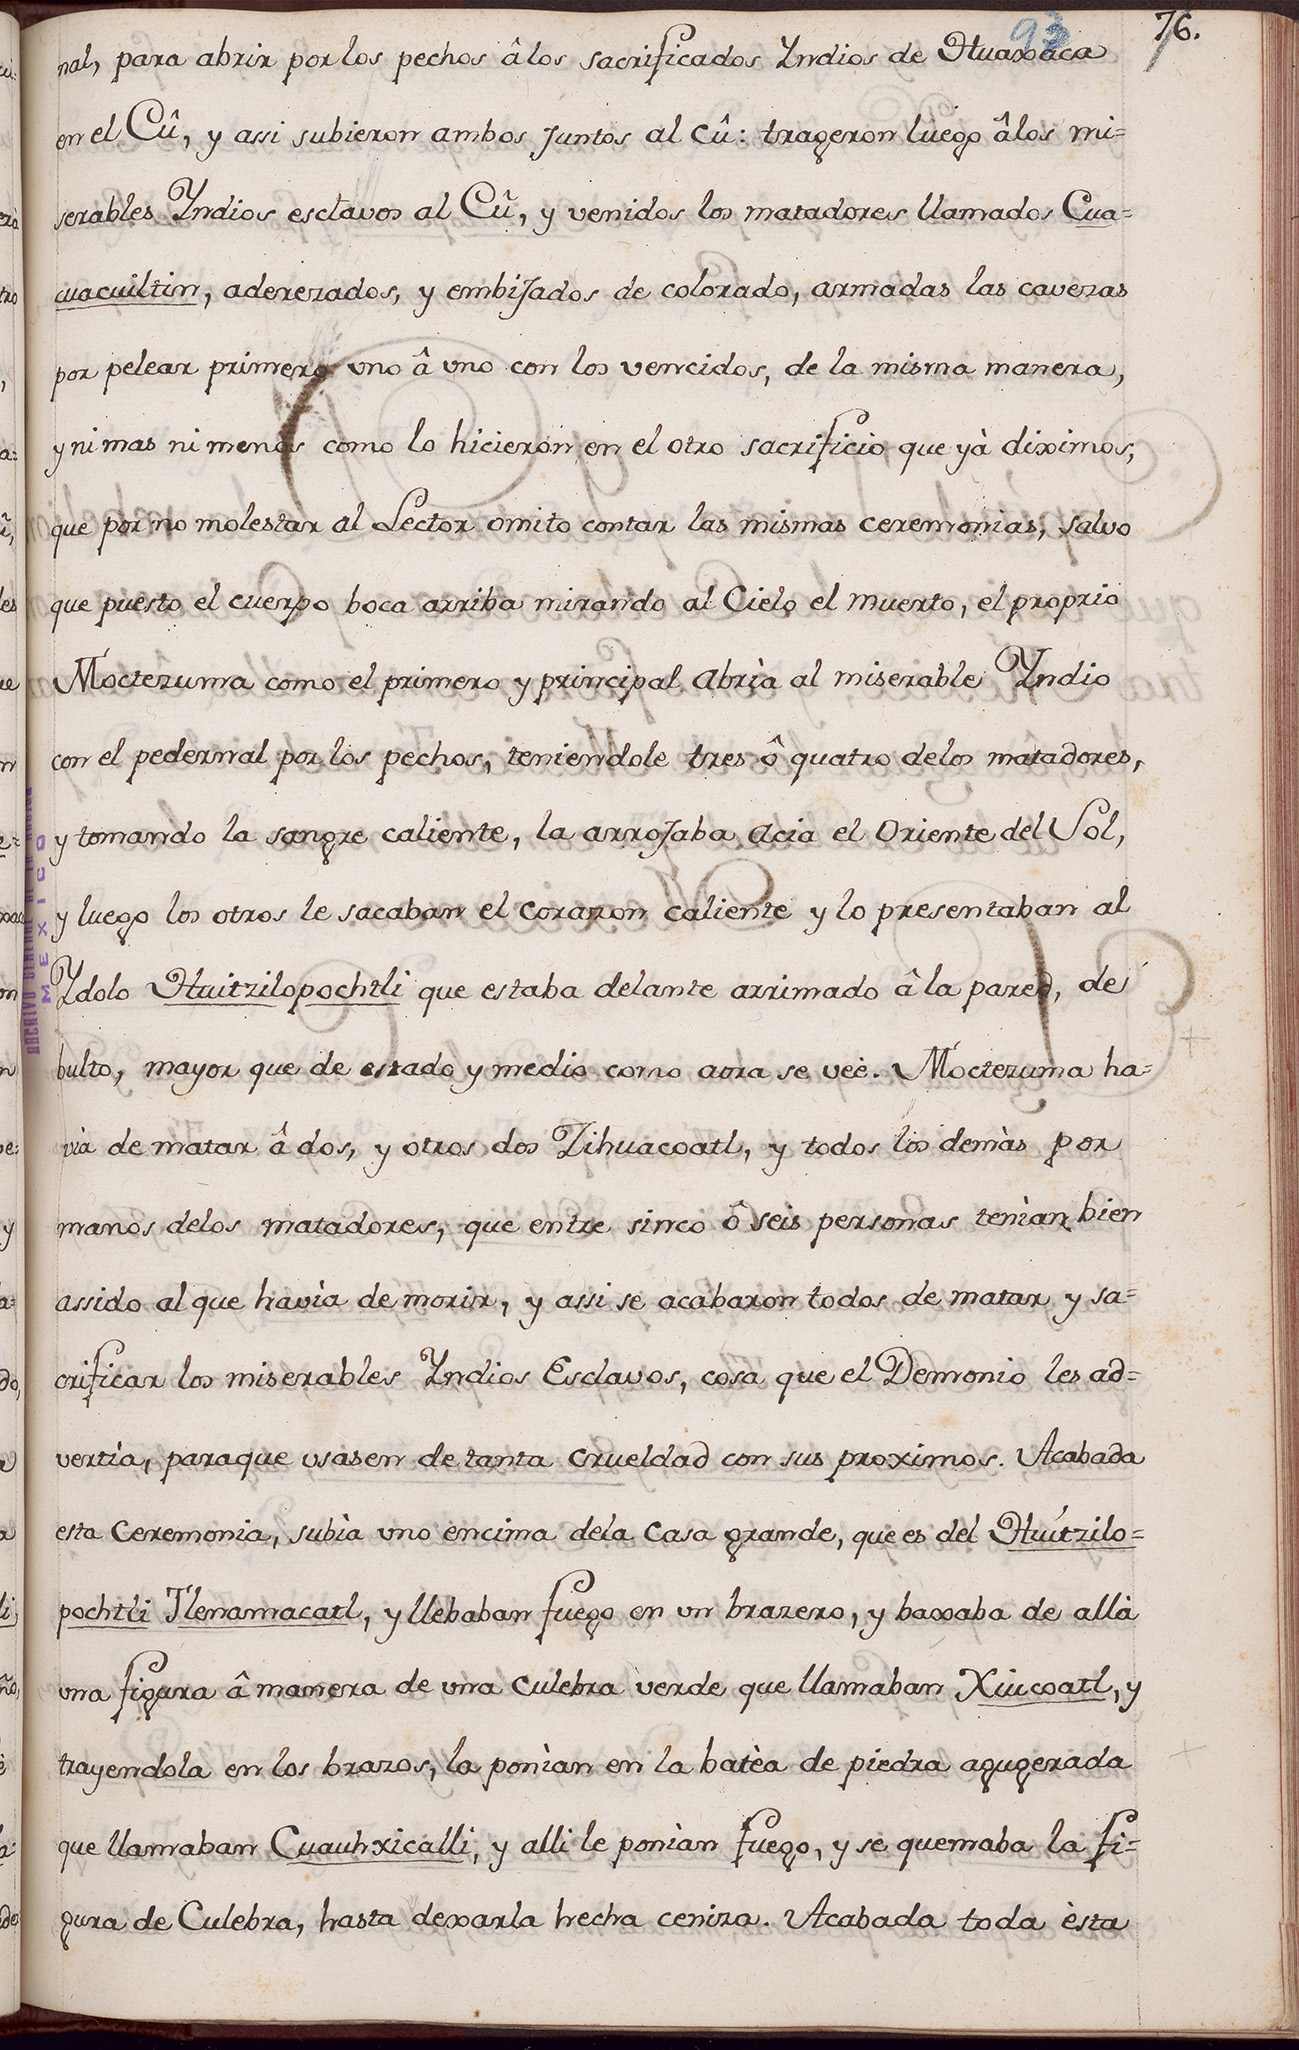 93 76.
nal, para abrir por los pechos âlos sacrificados Yndios de Huaxaca
en el Cû, y assi subieron ambos juntos al cû: trageron luego âlos mi=
serables Yndios esclavos al Cû, y venidos los matadores llamados Cua=
cuacuiltin, aderezados, y embijados de colorado, armadas las cavezas
por pelear primero uno â uno con los vencidos, de la misma manera,
y ni mas ni menos como lo hicieron en el otro sacrificio que yà diximos;
que por no molestar al Lector omito contar las mismas ceremonias, salvo
que puesto el cuerpo boca arriba mirando al Cielo el muerto, el proprio
Moctezuma como el primero y principal abrìa al miserable Yndio
con el pedernal por los pechos, teniendole tres ô quatro delos matadores,
y tomando la sangre caliente, la arrojaba acia el Oriente del Sol,
y luego los otros le sacaban el corazon caliente y lo presentaban al
Ydolo Huitzilopochtli que estaba delante arrimado â la pared, de
bulto, mayor que de estado y medio como aora se veè. Moctezuma ha=
via de matar â dos, y otros dos Zihuacoatl, y todos los demàs por
manos delos matadores, que entre sinco ô seis personas tenian bien
assido al que havìa de morir, y assi se acabaron todos de matar y sa=
crificar los miserables Yndios Esclavos, cosa que el Demonio les ad=
vertìa, paraque usasen de tanta crueldad con sus proximos. Acabada
esta Ceremonia, subìa uno encima dela Casa grande, que es del Huitzilo=
pochtli Tlenamacatl, y llebaban fuego en un brazero, y baxaba de allà
una figura â manera de una culebra verde que llamaban Xiucoatl, y
trayendola en los brazos, la ponìan en la batèa de piedra agugerada
que llamaban Cuauhxicalli, y alli le ponian fuego, y se quemaba la fi=
gura de Culebra, hasta dexarla hecha ceniza. Acabada toda èsta
MEXICO